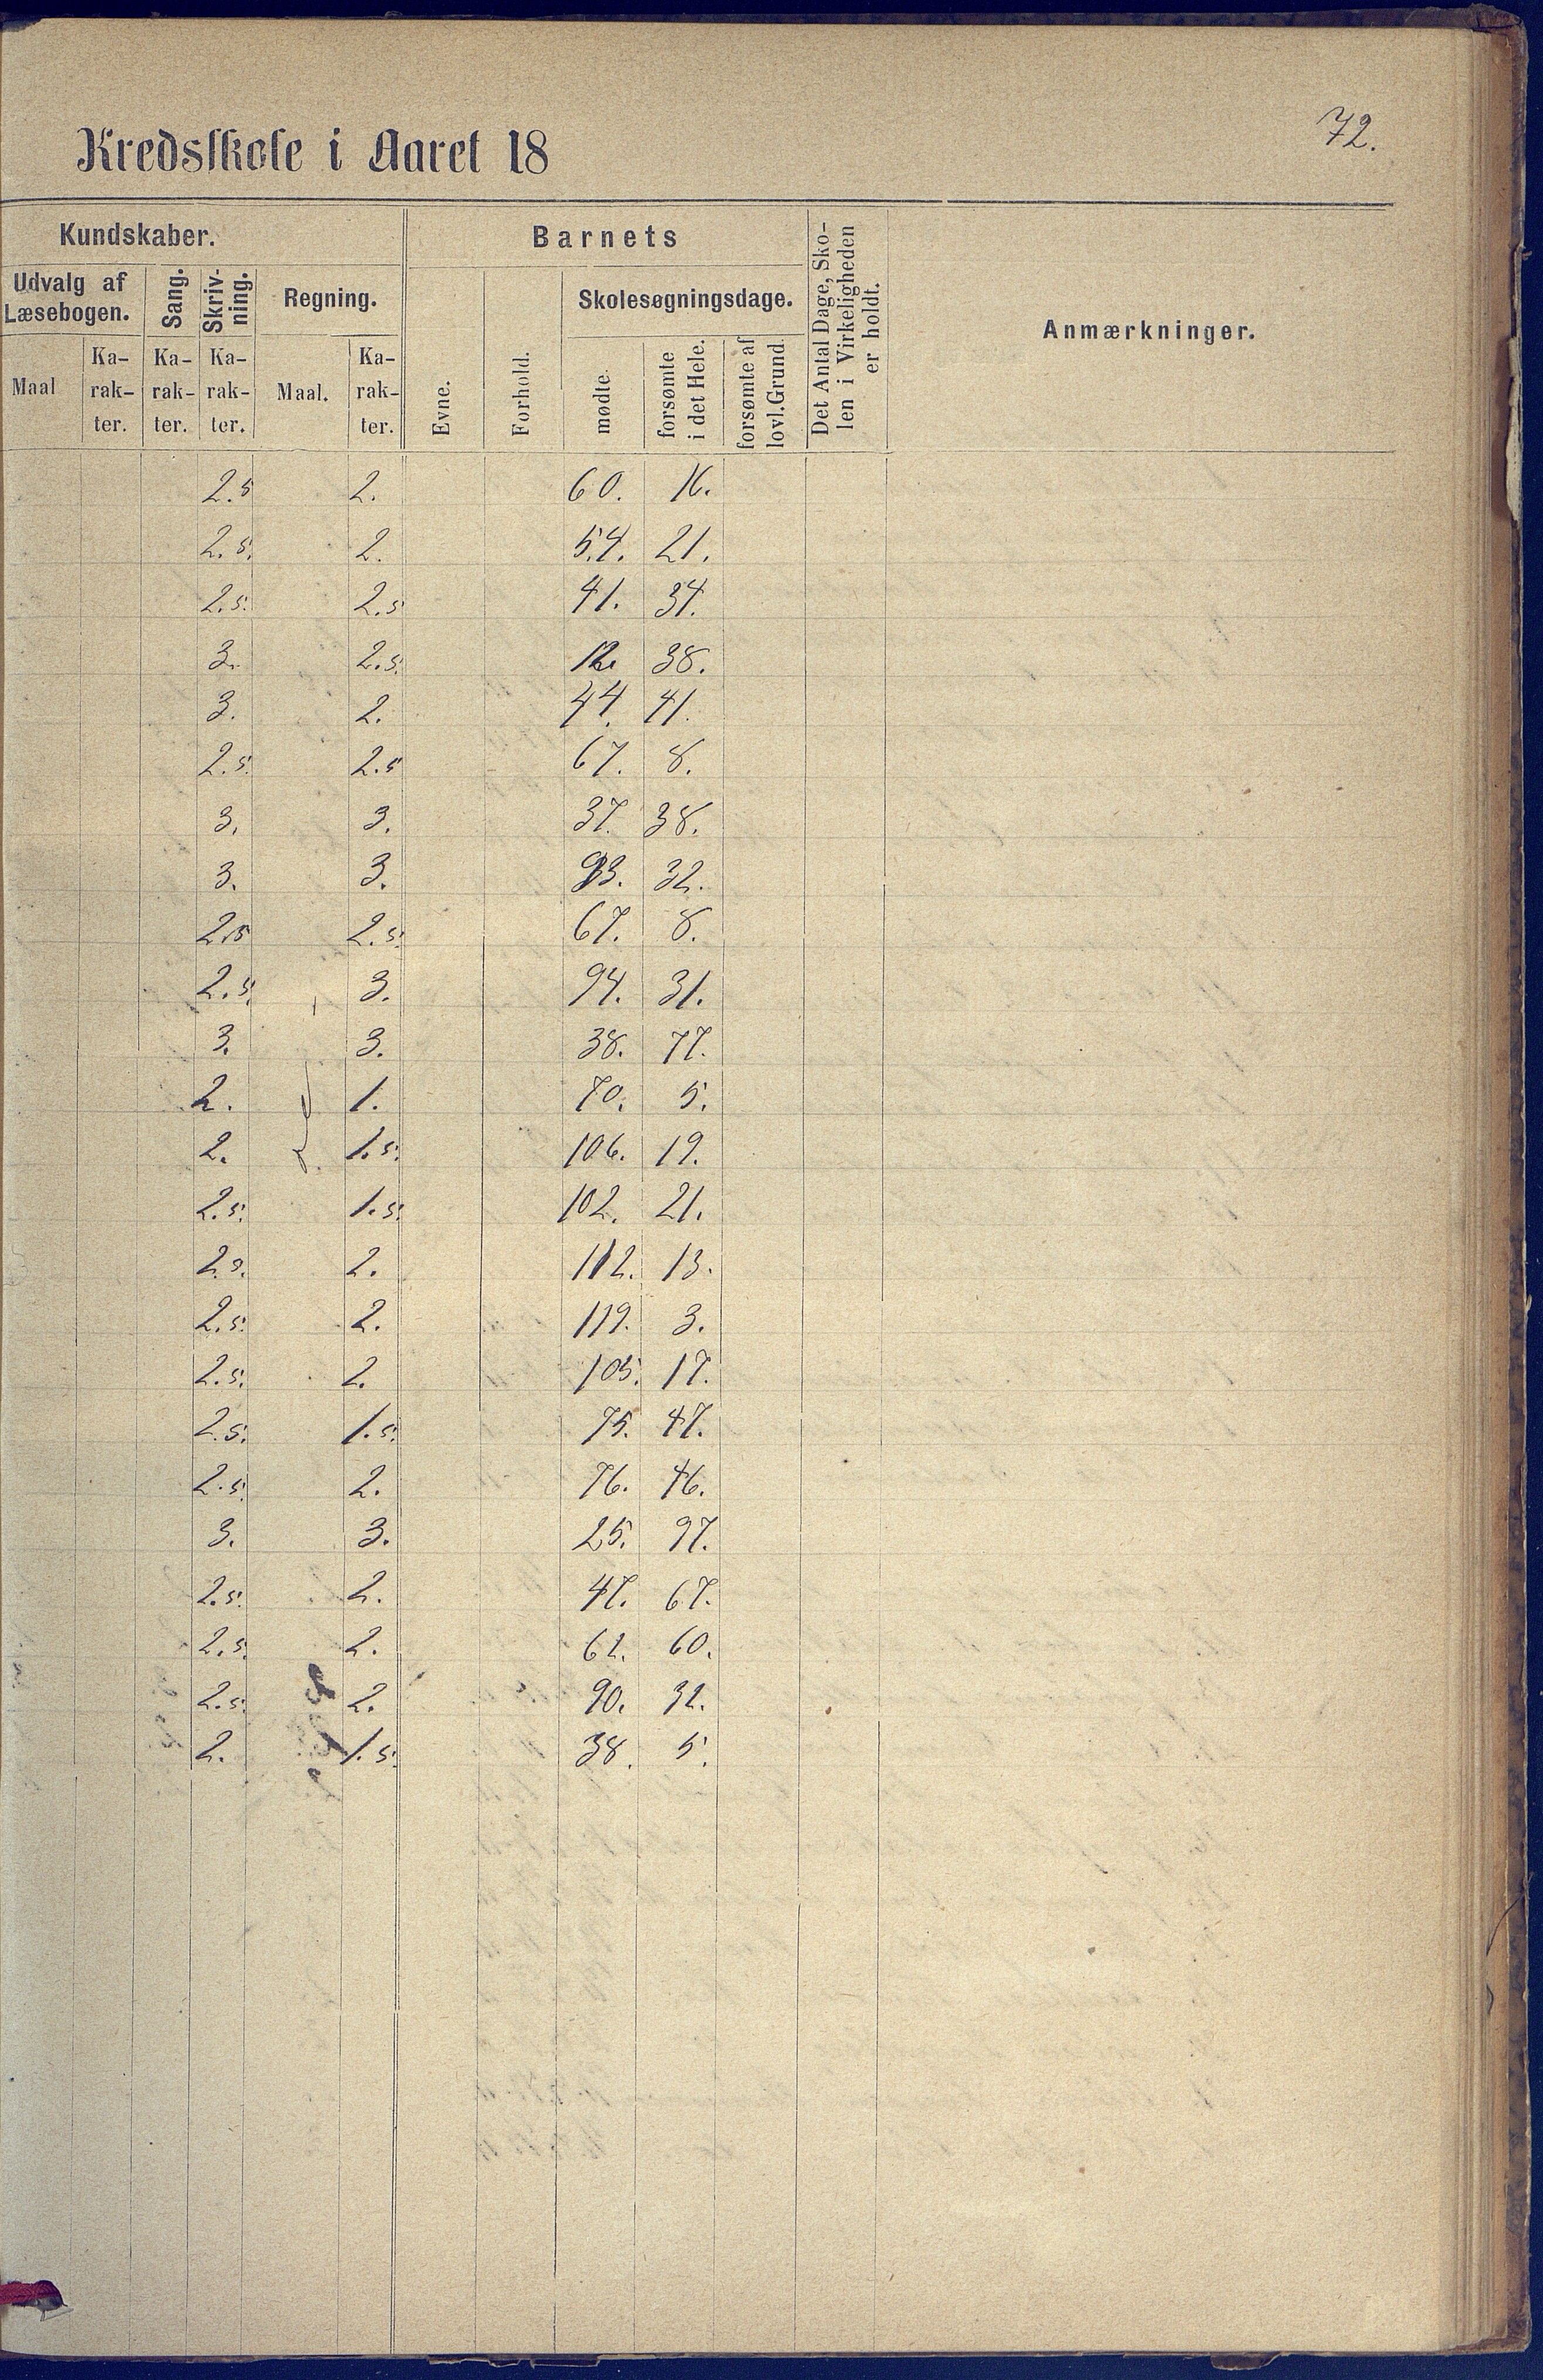 72.
Kredsskole i Aaret 18
Kundskaber. Barnets Det Antal Dage, Skolen i Virkeligheden er holdt. Anmærkninger.
Udvalg af Læsebogen. Sang. Skrivning. Regning. Evne. Forhold. Skolesøgningsdage.
Maal Karakter. Karakter. Karakter. Maal. Karakter. mødte. forsømte i det Hele. forsømte af lovl. Grund.
2.5 2. 60. 16.
2.5. 2. 54. 21.
2.5. 2.5 41. 34.
3. 2.5. 12. 38.
3. 2. 44. 41.
2.5. 2.5 67. 8.
3. 3. 37. 38.
3. 3. 93. 32.
2.5 2.5. 67. 8.
2.5. 3. 94. 31.
3. 3. 38. 77.
2. 1. 70. 5.
2. 1.5. 106. 19.
2.5. 1.5. 102. 21.
2. 112. 13.
2.5. 2. 119. 3.
2.5. 2. 105. 17.
2.5. 1.5. 75. 47.
2.5. 2. 76. 46.
3. 3. 25. 97.
2.5. 2. 47. 67.
2.5. 2. 62. 60.
2.5. 2. 90. 32.
2. 1.5. 38. 5.